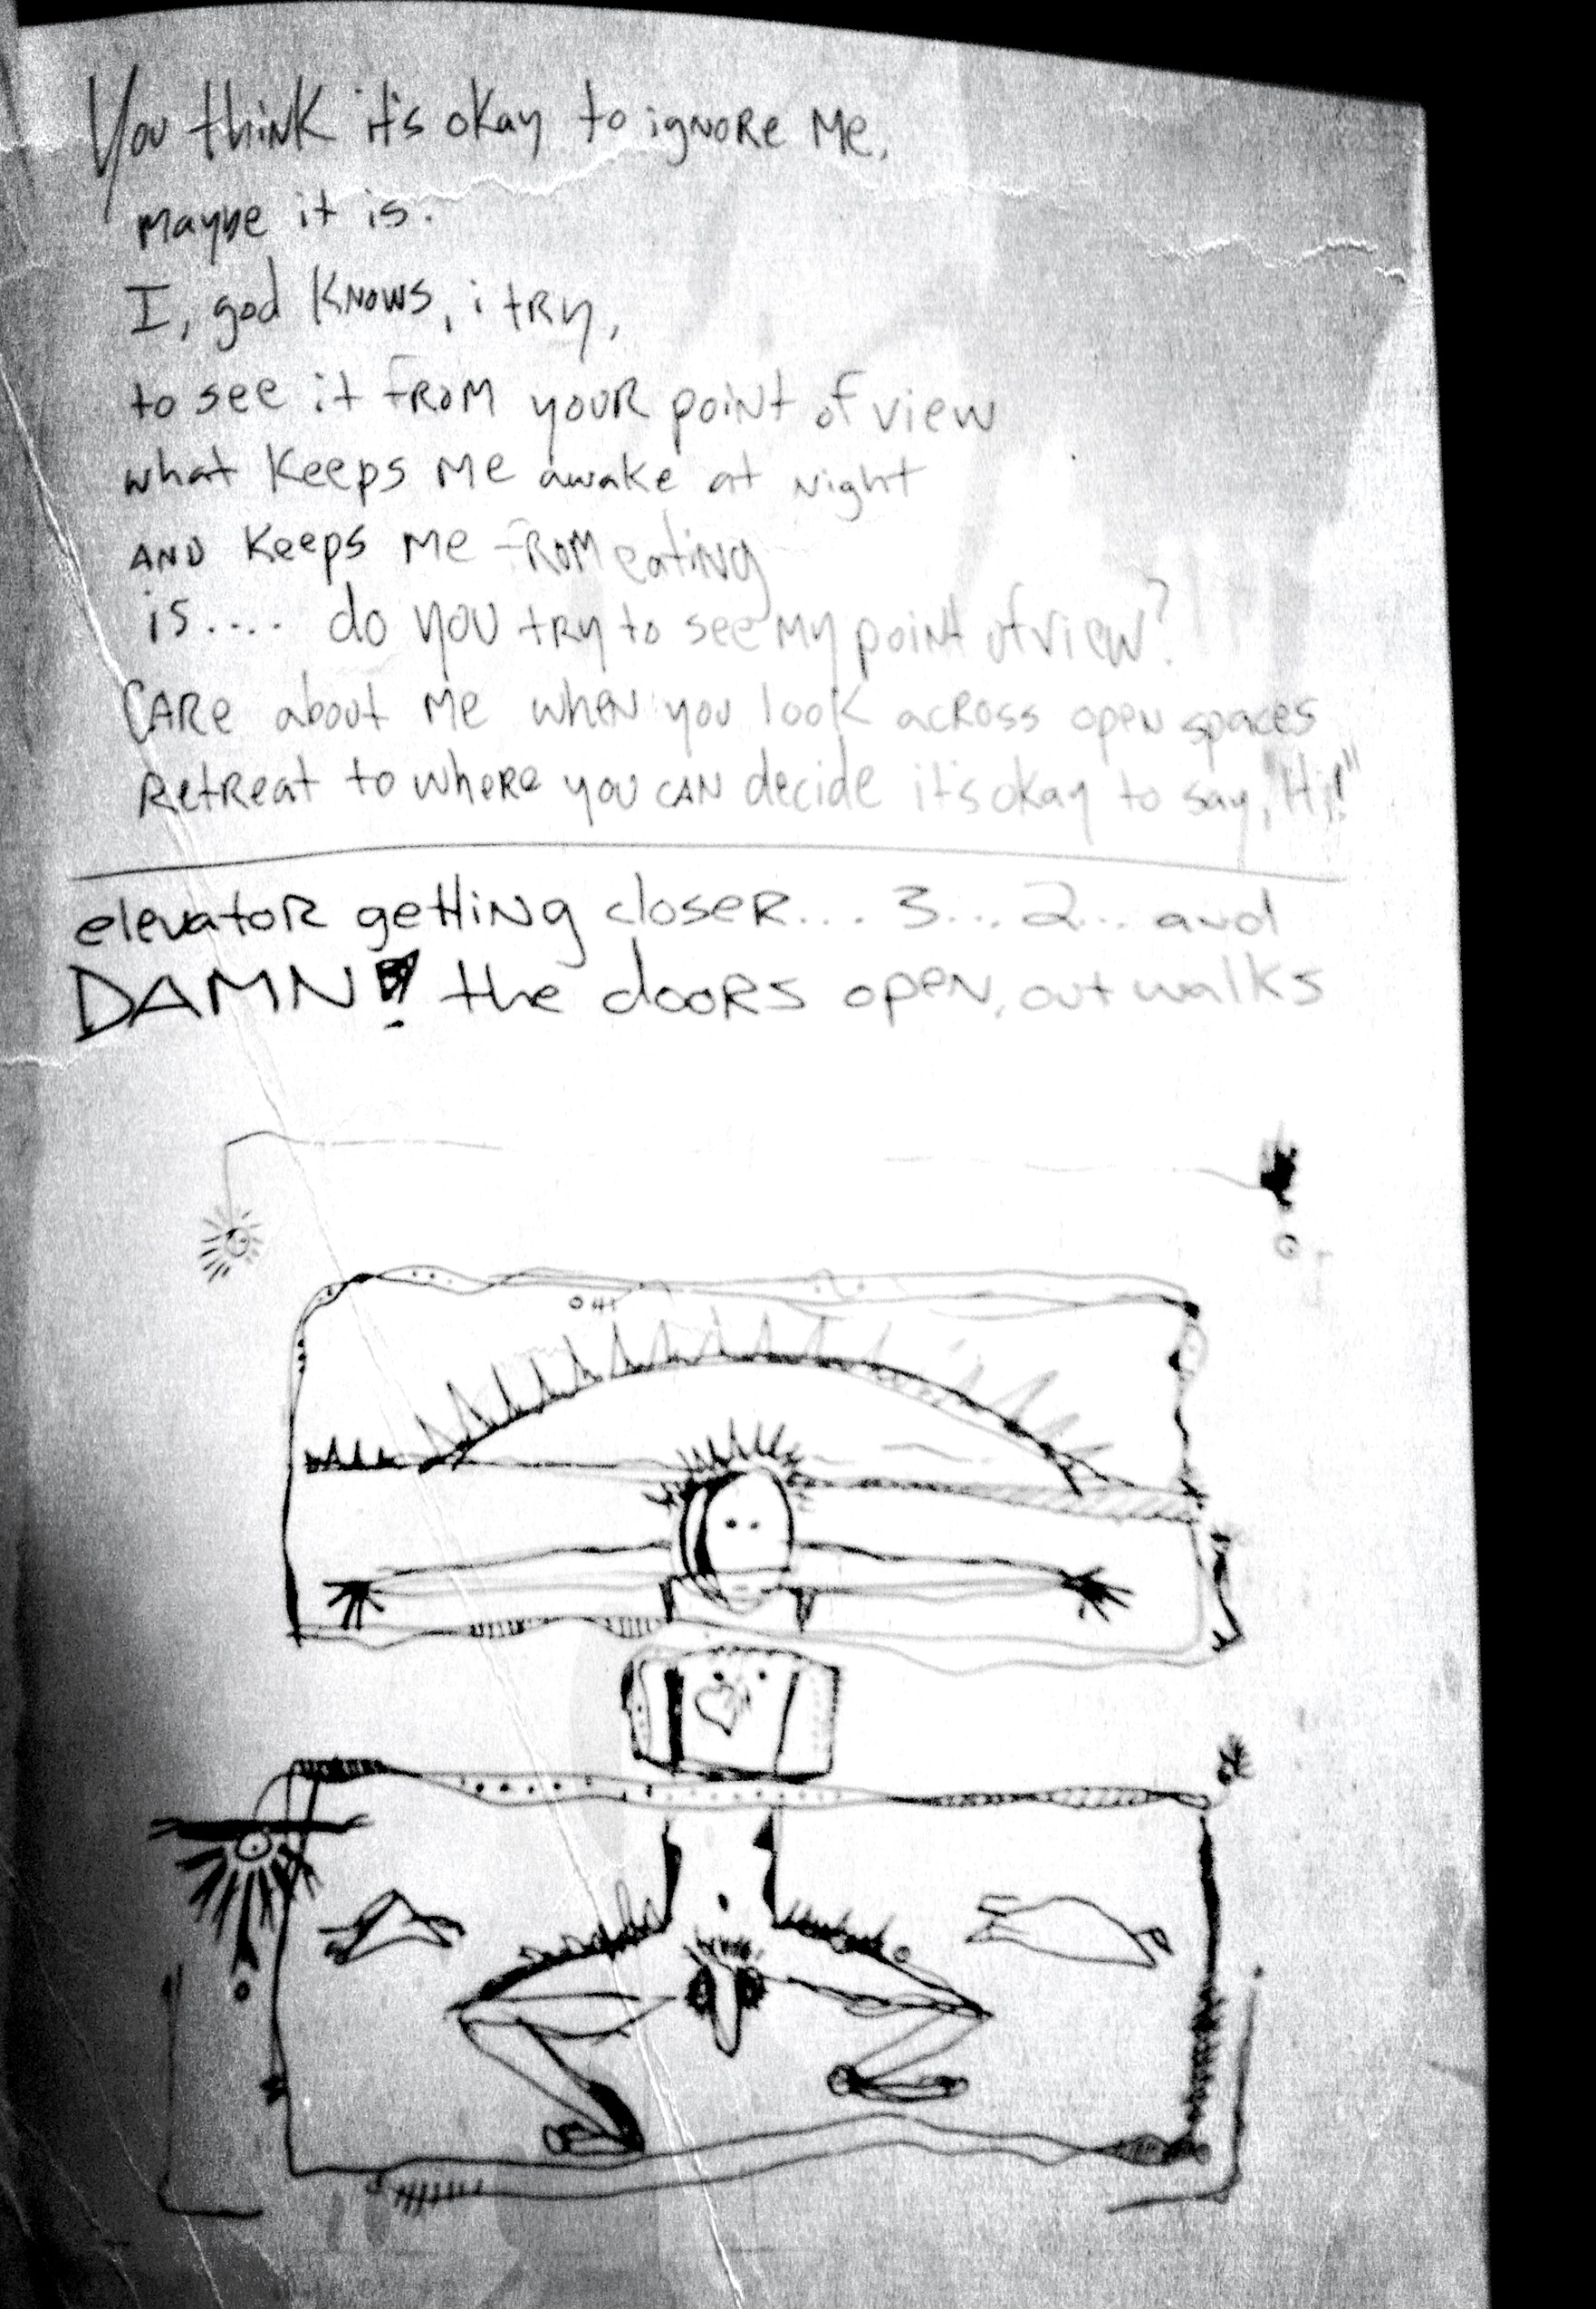 You think it's okay to ignore me,
maybe it is.
I, god knows, i try,
to see it from your point of view
what keeps me awake at night
AND keeps me from eating
is.... do you try to see my point of view?
Care about me when you look across open spaces
Retreat to where you can decide it's okay to say, "Hi!"
elevator getting closer... 3... 2... and
DAMN! the doors open, out walks